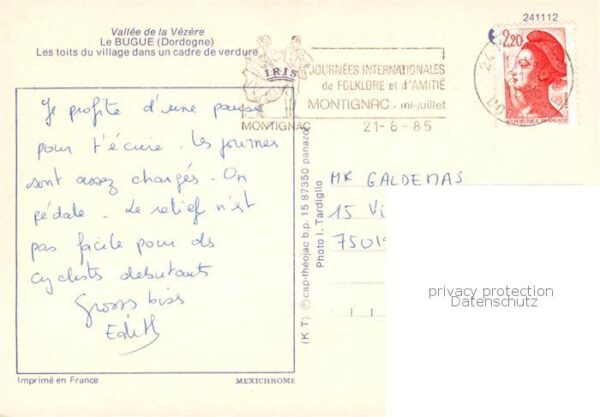 241112
Vallée de la Vézère
Le BUGUE (Dordogne)
Les toits du village dans un cadre de verdure
IRIS
MONTIGNAC
JOURNÉES INTERNATIONALES
de FOLKLORE et d'AMITIÉ
MONTIGNAC - mi-juillet
21-8-85
24
DO
2,20
REPUBLIQUE FRANÇAISE
Je profite d'une pause
pour t'écrire. Les journes
sont assez chargés. On
pédale. Le relief n'est
pas facile pour ds
cyclists debutants
Gross biss
Edith
MR GALDEMAS
15 Vi
75019
(K T) © cap-théojac b.p. 15 87350 panazol
Photo I. Tardiglio
privacy protection
Datenschutz
Imprimé en France
MEXICHROME